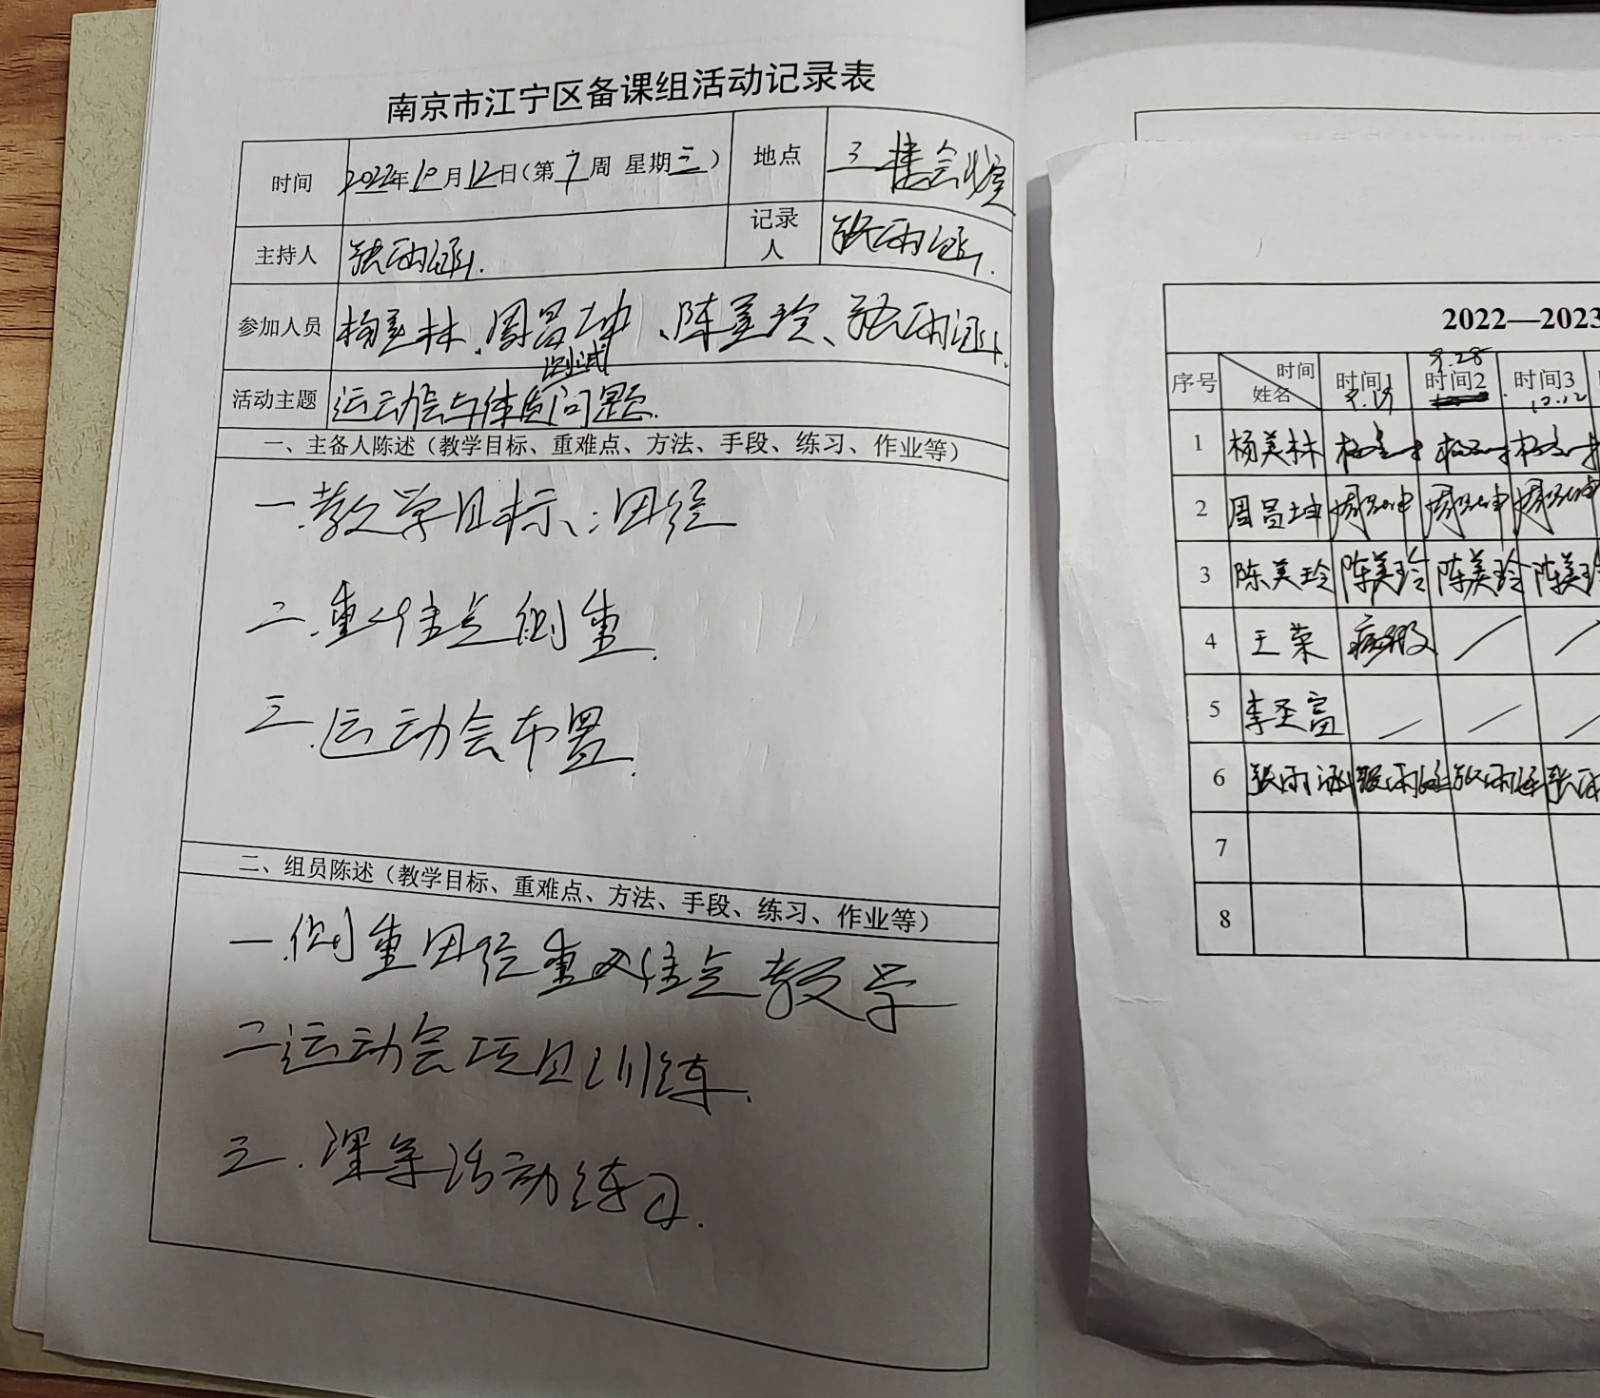 南京市江宁区备课组活动记录表
时间 2022年10月12日(第7周 星期三) 地点 三楼会议室
主持人 张雨证. 记录人 张雨证.
参加人员 杨美林、周昌坤、陈美玲、张雨证.
测试
活动主题 运动会与体质问题.
一、主备人陈述(教学目标、重难点、方法、手段、练习、作业等)
一.教学目标:田径
二.重难点侧重.
三.运动会布置.
二、组员陈述(教学目标、重难点、方法、手段、练习、作业等)
一.侧重田径重难点教学
二运动会项目训练.
三.课余活动练习.
2022—2023
9.28
序号 时间 姓名 时间1 时间2 时间3
10.12
1 杨美林
2 周昌坤 周昌坤 周昌坤 周昌坤
3 陈美玲 陈美玲 陈美玲 陈美
4 王荣 病假 / /
5 李圣富 / / /
6 张雨证 张雨证 张雨证 张雨
7
8